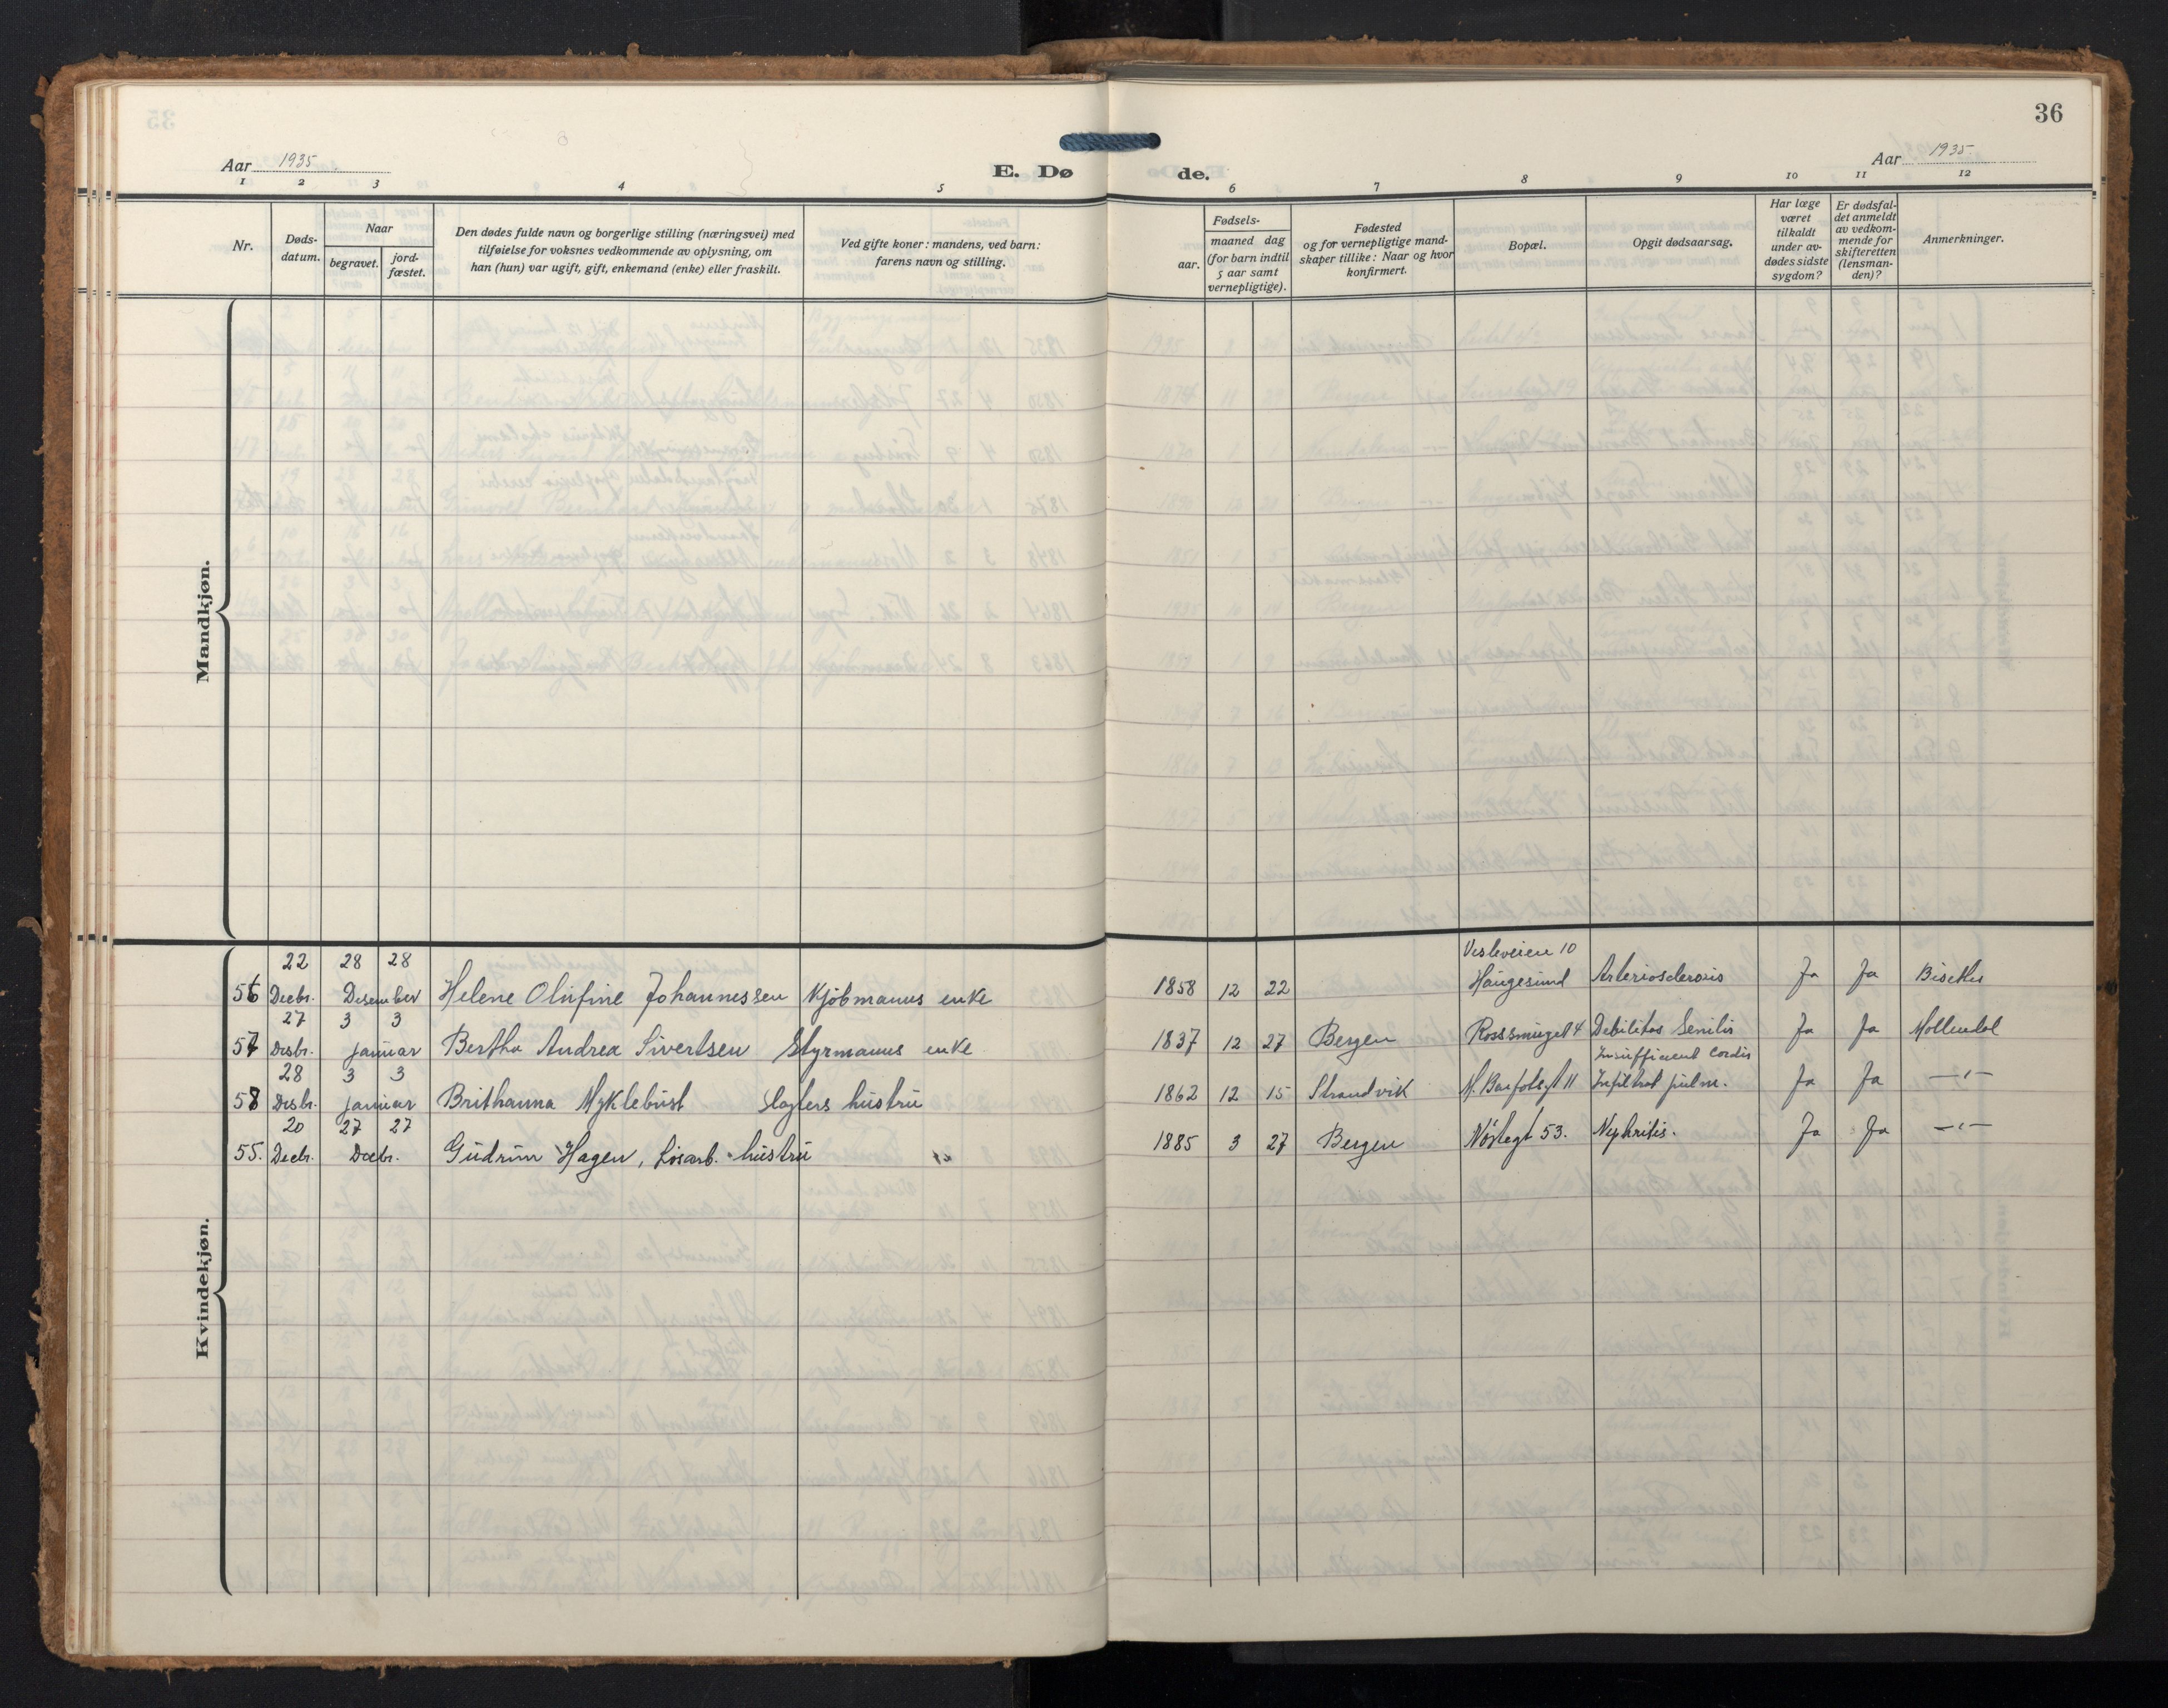 36
Aar 1935
E. Dø de.
Aar 1935
1 2 3 4 5 6 7 8 9 10 11 12
Nr.
Døds-
datum.
Naar
begravet.
jord-
fæstet.
Den dødes fulde navn og borgerlige stilling (næringsvei) med
tilføielse for voksnes vedkommende av oplysning, om
han (hun) var ugift, gift, enkemand (enke) eller fraskilt.
Ved gifte koner: mandens, ved barn:
farens navn og stilling.
Fødsels-
aar.
maaned dag
(for barn indtil
5 aar samt
vernepligtige).
Fødested
og for vernepligtige mand-
skaper tillike: Naar og hvor
konfirmert.
Bopæl.
Opgit dødsaarsag.
Har læge
været
tilkaldt
under av-
dødes sidste
sygdom?
Er dødsfal-
det anmeldt
av vedkom-
mende for
skifteretten
(lensman-
den)?
Anmerkninger.
Mandkjøn.
Kvindekjøn.
22 28 28 Vesleveien 10
56 Decbr. Desember Helene Olufine Johannessen Kjøbmanns enke 1858 12 22 Haugesund Arteriosclerosis Ja Ja
27 3 3
57 Desbr. Januar Bertha Andrea Sivertsen Styrmanns enke 1837 12 27 Bergen Rosssmuget 4 Debilitas Senilis Ja Ja Møllendal
28 3 3 Insufficient Cordis
58 Desbr. Januar Brithanna Myklebust Slagters hustru 1862 12 15 Strandvik Infiltrat pulm. Ja Ja —"—
20 27 27
55. Decbr. Decbr. Gudrun Hagen, Løsarb. hustru " 1885 3 27 Bergen Nøstegt 53. Nephritis. Ja Ja —"—